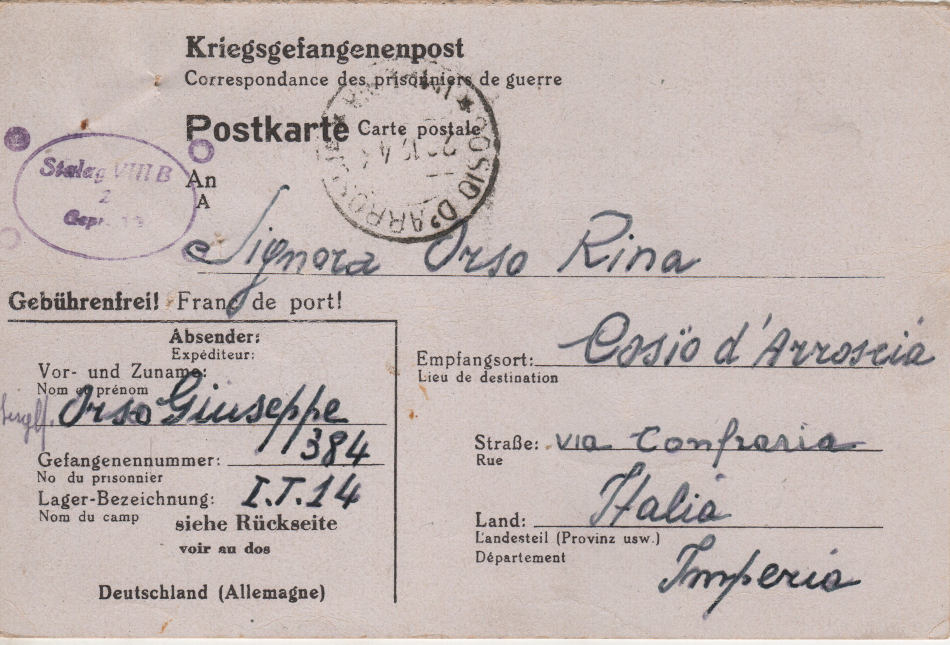 Kriegsgefangenenpost
Correspondance des prisonniers de guerre
Postkarte Carte postale
COSIO D'ARROSCIA
Stalag VIII B
2
Gepr
An
A
Signora Orso Rina
Gebührenfrei! Franc de port!
Absender:
Expéditeur:
Vor- und Zuname:
Nom et prénom
Orso Giuseppe
Gefangenennummer: 11384
No du prisonnier
Lager-Bezeichnung: I.T.14
Nom du camp
siehe Rückseite
voir au dos
Deutschland (Allemagne)
Empfangsort: Cosio d'Arroscia
Lieu de destination
Straße: via Confraria
Rue
Land: Italia
Landesteil (Provinz usw.)
Département
Imperia